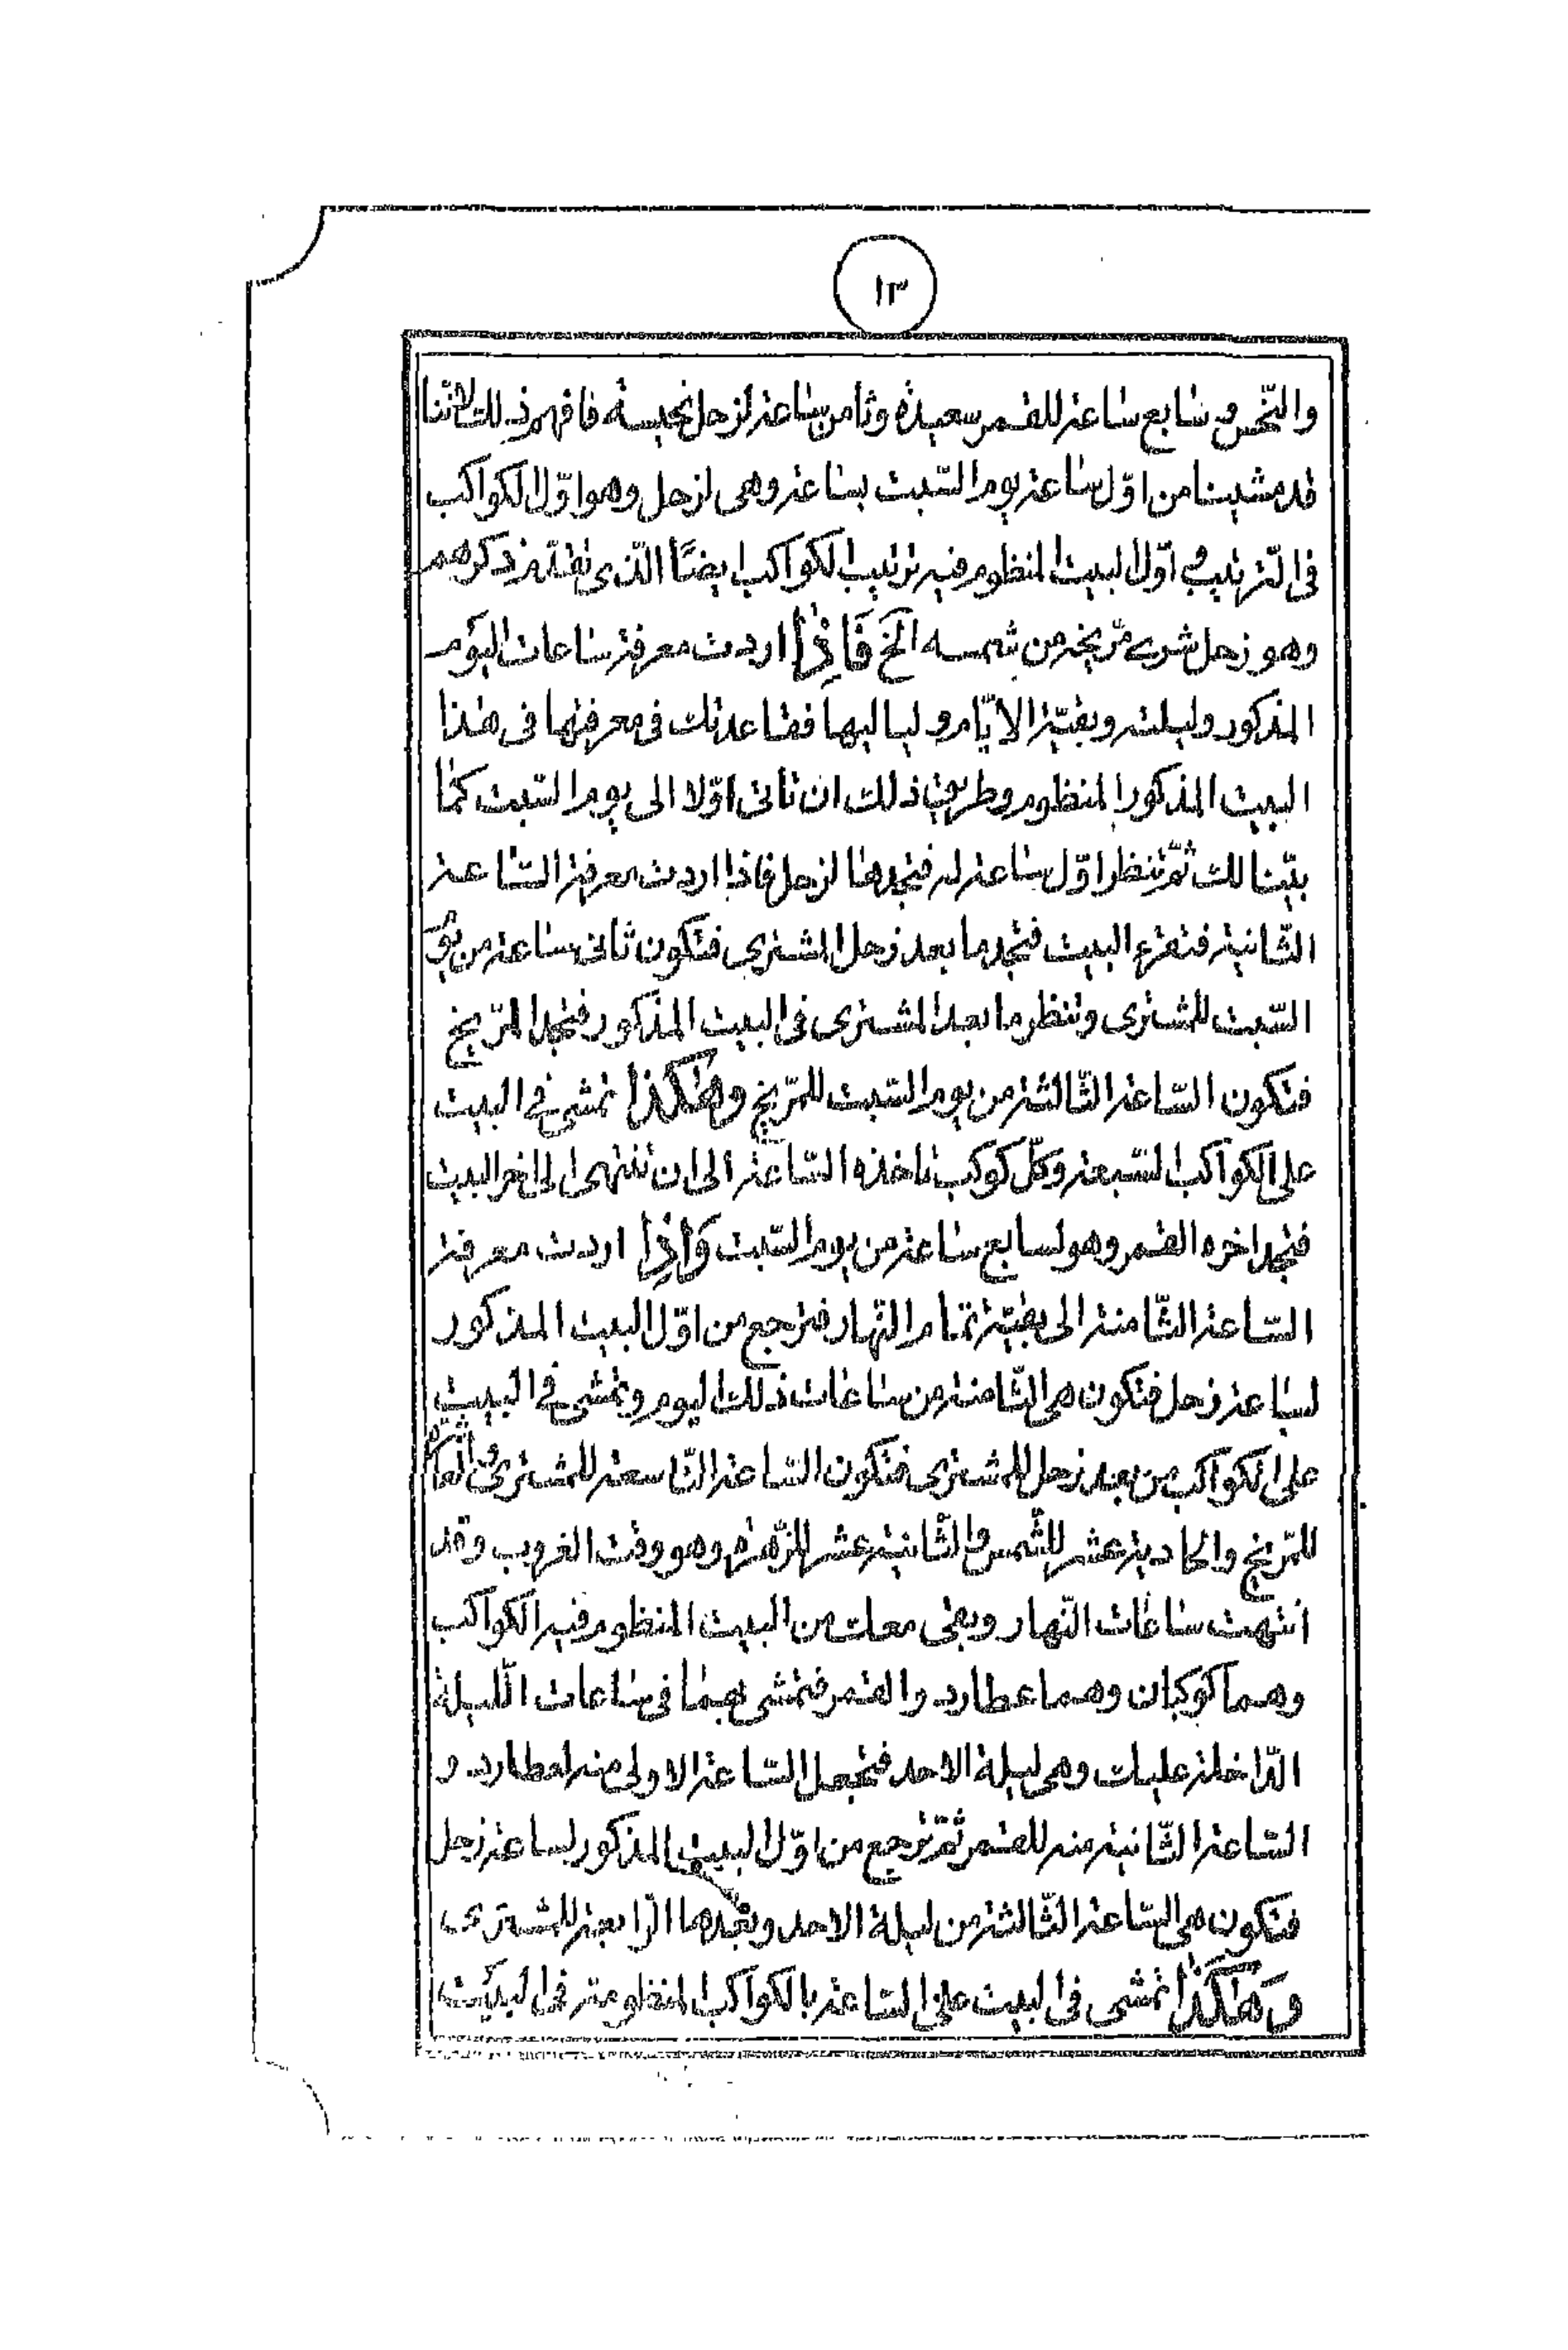 ١٣
والنّحس و سابع ساعة للقمر سعيدة وثامن ساعة لزحل نحيسة فافهم ذلك لاننا
قد مشينا من اوّل ساعة يوم السّبت بساعة وهى لزحل وهو اوّل الكواكب
فى التّرتيب و اوّل البيت المنظوم فيه ترتيب الكواكب ايضًا الّذى تقدّم ذكرهم
وهو زحل شرى مرّيخه من شمسه الخ فَاِذٰا اردت معرفة ساعات اليوم
المذكور وليلته وبقيّة الايّام و لياليها فقاعدتك فى معرفتها فى هذا
البيت المذكور المنظوم وطريق ذلك ان تاتى اوّلا الى يوم السّبت كما
بيّنا لك ثمّ تنظر اوّل ساعة له فتجدها لزحل فاذا اردت معرفة السّاعة
الثّانية فتقرء البيت فتجد ما بعد زحل المشترى فتكون ثانى ساعة من يوم
السّبت للمشترى وتنظر ما بعد المشترى فى البيت المذكور فتجد المرّيخ
فتكون السّاعة الثّالثة من يوم السّبت للمرّيخ وهٰكَذا تمشى فى البيت
على الكواكب السّبعة وكلّ كوكب تاخذه السّاعة الى ان تنتهى الى اخر البيت
فتجد اخره القمر وهو لسابع ساعة من يوم السّبت وَاِذٰا اردت معرفة
السّاعة الثّامنة الى بقيّة تمام النّهار فترجع من اوّل البيت المذكور
لساعة زحل فتكون هى الثّامنة من ساعات ذلك اليوم وتمشى فى البيت
على الكواكب من بعد زحل للمشترى فتكون السّاعة التّاسعة للمشترى والعاشرة
للمرّيخ والحادية عشر للشّمس و الثّانية عشر للزّهرة وهو وقت الغروب وقد
انتهت ساعات النّهار وبقى معك من البيت المنظوم فيه الكواكب
وهما كوكبان وهما عطارد والقمر فتمشى بهما فى ساعات اللّيلة
الدّاخلة عليك وهى ليلة الاحد فتجعل السّاعة الاولى منه لعطارد و
السّاعة الثّانية منه للقمر ثمّ ترجع من اوّل البيت المذكور لساعة زحل
فتكون هى السّاعة الثّالثة من ليلة الاحد وبعدها الرّابعة للمشترى
وَهٰكَذا تمشى فى البيت على السّاعة بالكواكب المنظومة فى البيت